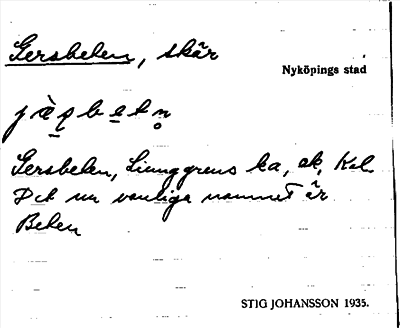 Gersbeten, skär
Nyköpings stad
Gersbeten, Ljunggrens ka, ek, Kal.
Det nu vanliga namnet är
Beten
STIG JOHANSSON 1935.